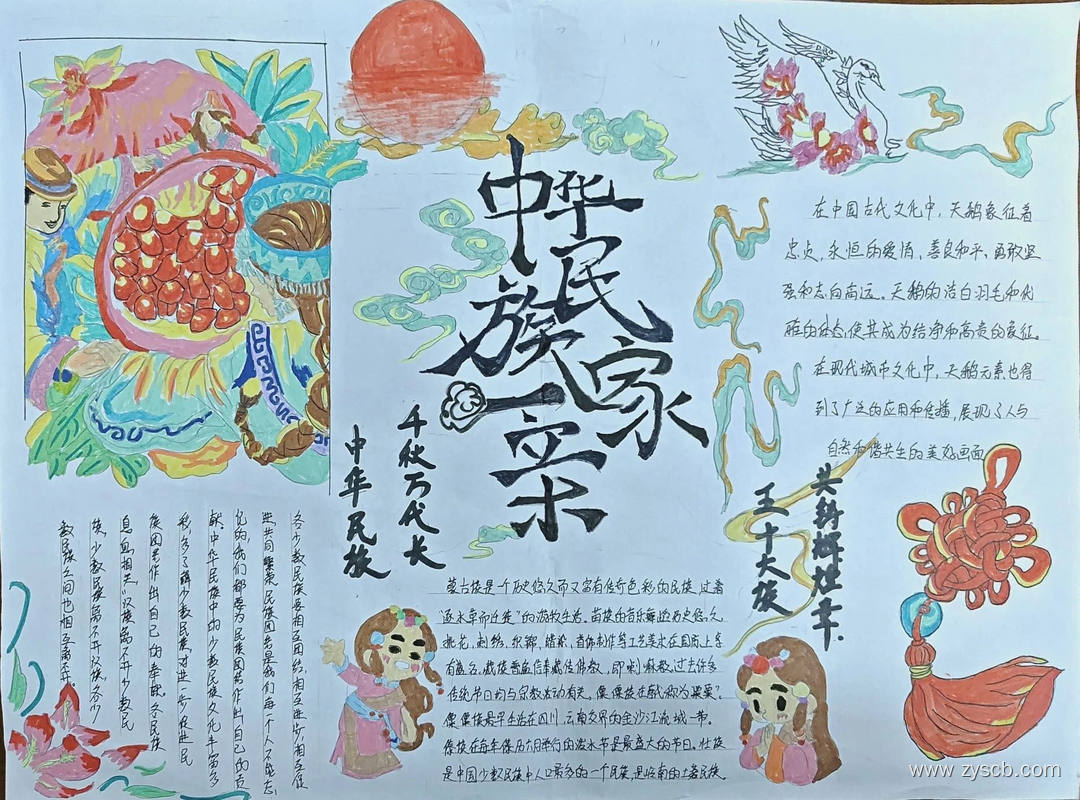 中华
民族
一家
亲
千秋万代长
中华民族
共斜辉煌章.
五十六族
在中国古代文化中，天鹅象征着
忠贞，永恒的爱情，善良和平、勇敢坚
强和志向高远。天鹅的洁白羽毛和优
雅的体态,使其成为纯净和高贵的象征。
在现代城市文化中，天鹅元素也得
到了广泛的应用和传播，展现了人与
自然和谐共生的美好画面
各少数民族要相互团结,相互进步,相互促
进共同繁荣,民族团结是我们每一个人不能忘
记的 我们都要为民族团结作出自己的贡
献.中华民族中的少数民族文化丰富多
彩,多了解少数民族,对进一步促进民
族团结作出自己的奉献.各民族
息息相关,汉族离不开少数民
族,少数民族离不开汉族,各少
数民族之间也相互离不开.
蒙古族是一个历史悠久而又富有传奇色彩的民族,过着
逐水草而迁徙"的游牧生活。苗族的音乐舞蹈历史悠久,
挑花,刺绣,织锦,蜡染,首饰制作等工艺美术在国际上享
有盛名。藏族普遍信奉藏传佛教,即喇嘛教,过去许多
传统节日均与宗教活动有关。傈僳族在
傈僳族最早生活在四川,云南交界的金沙江流域一带。
傣族在每年傣历六月举行的泼水节是最盛大的节日。壮族
是中国少数民族中人口最多的一个民族,是岭南的土著民族。
www.zyscb.com